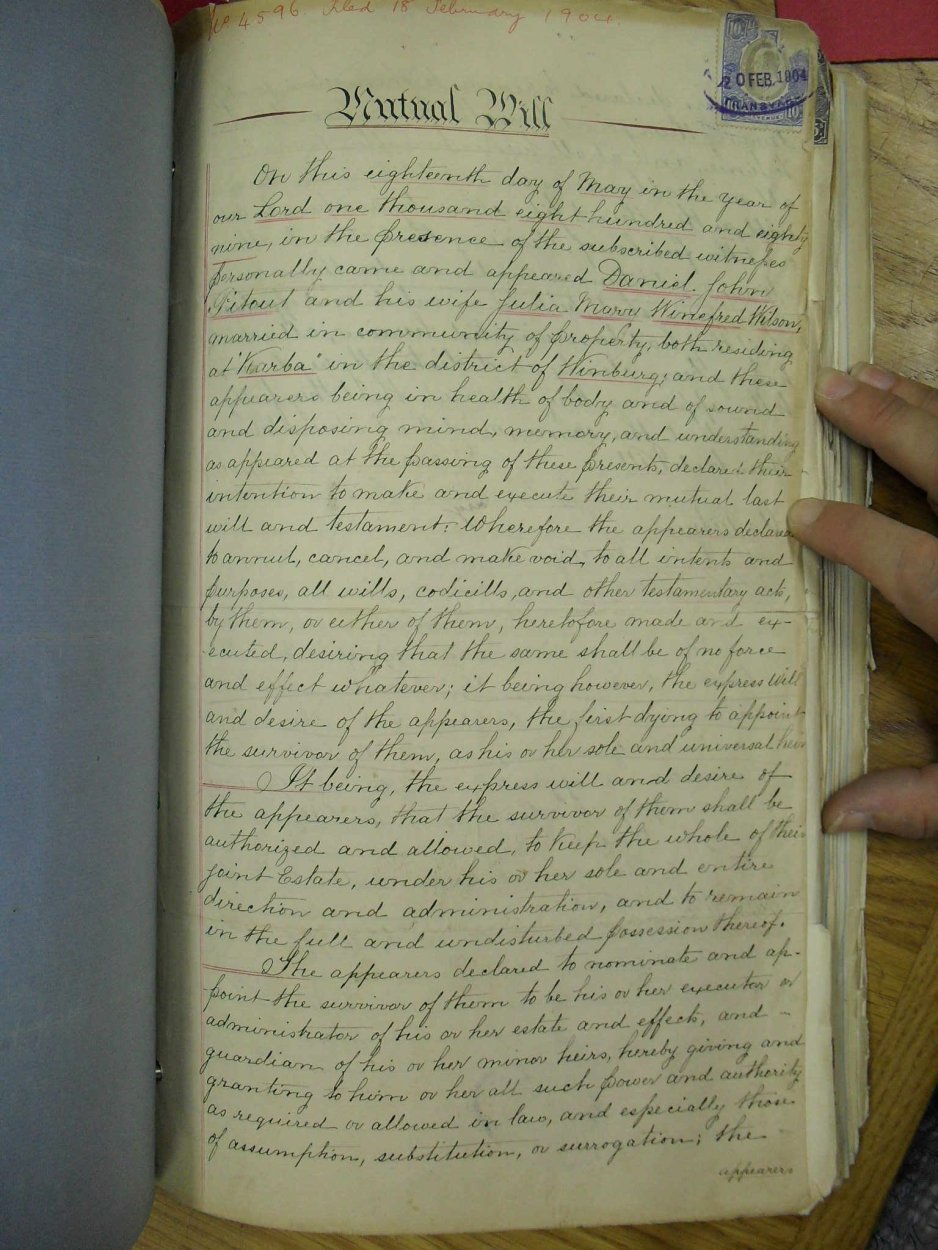 No. 4596 Filed 18 February 1904.
20 FEB. 1904
TRANSVAAL
Mutual Will
On this eighteenth day of May in the year of
our Lord one thousand eight hundred and eighty
nine, in the presence of the subscribed witnesses
personally came and appeared Daniel John
Pitout and his wife Julia Mary Winefred Wilson,
married in community of property, both residing
at "Kurba" in the district of Winburg; and these
appearers being in health of body and of sound
and disposing mind, memory, and understanding
as appeared at the passing of these presents, declared their
intention to make and execute their mutual last
will and testament. Wherefore the appearers declared
to annul, cancel, and make void, to all intents and
purposes, all wills, codicills, and other testamentary acts,
by them, or either of them, heretofore made and ex-
ecuted, desiring that the same shall be of no force
and effect whatever; it being however, the express will
and desire of the appearers, the first dying to appoint
the survivor of them, as his or her sole and universal heir
It being, the express will and desire of
the appearers, that the survivor of them shall be
authorized and allowed, to keep the whole of their
joint Estate, under his or her sole and entire
direction and administration, and to remain
in the full and undisturbed possession thereof.
The appearers declared to nominate and ap-
point the survivor of them to be his or her executor or
administrator of his or her estate and effects, and -
guardian of his or her minor heirs, hereby giving and
granting to him or her all such power and authority
as required or allowed in law, and especially those
of assumption, substitution, or surrogation; the
appearers